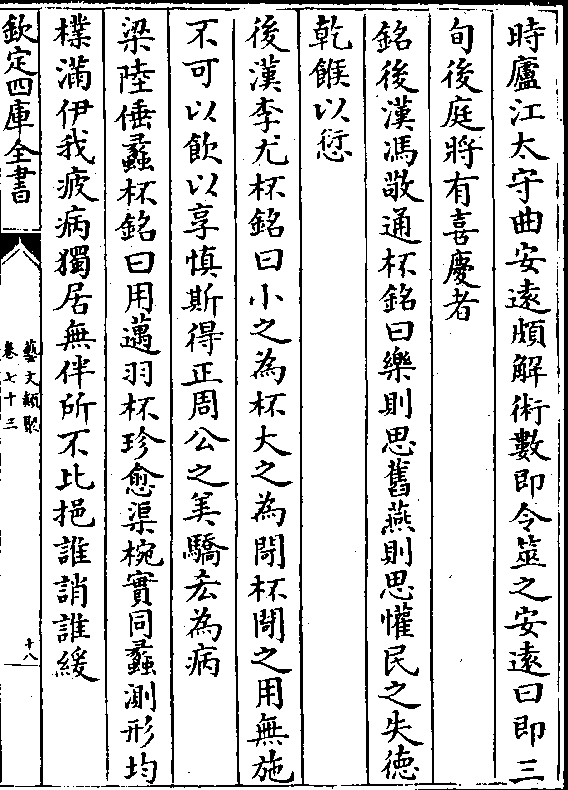 時廬江太守曲安遠頗解術數即令筮之安遠曰即三
旬後庭將有喜慶者
銘後漢馮敬通杯銘曰樂則思舊燕則思懽民之失德
乾餱以愆
後漢李尤杯銘曰小之為杯大之為閜杯閜之用無施
不可以飲以享慎斯得正周公之美驕吝為病
梁陸倕蠡杯銘曰用邁羽杯珍愈渠椀實同蠡測形均
樸滿伊我疲病獨居無伴所不比挹誰誚誰緩
欽定四庫全書
藝文類聚
卷七十三
十八